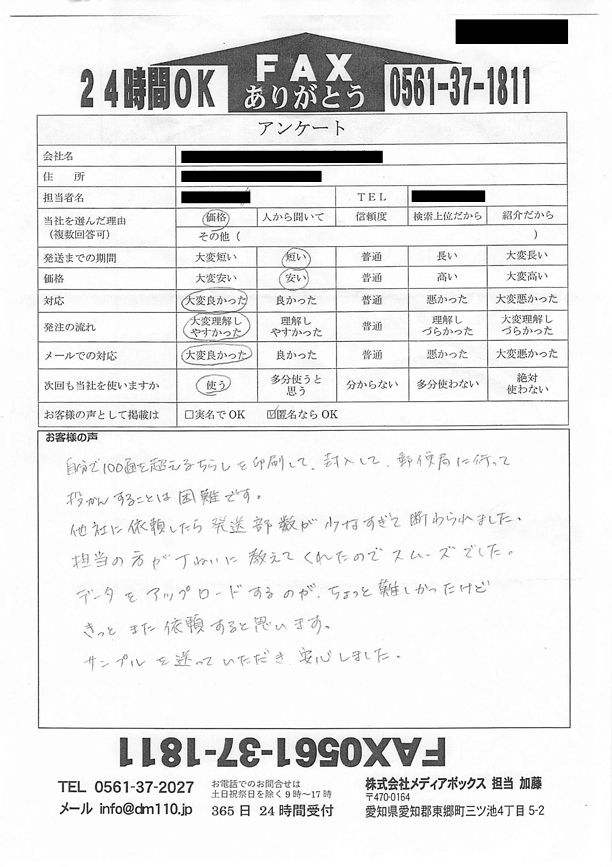 24時間OK FAX ありがとう 0561-37-1811
アンケート
会社名
住 所
担当者名 TEL
当社を選んだ理由 価格 人から聞いて 信頼度 検索上位だから 紹介だから
(複数回答可) その他 ( )
発送までの期間 大変短い 短い 普通 長い 大変長い
価格 大変安い 安い 普通 高い 大変高い
対応 大変良かった 良かった 普通 悪かった 大変悪かった
発注の流れ 大変理解しやすかった 理解しやすかった 普通 理解しづらかった 大変理解しづらかった
メールでの対応 大変良かった 良かった 普通 悪かった 大変悪かった
次回も当社を使いますか 使う 多分使うと思う 分からない 多分使わない 絶対使わない
お客様の声として掲載は □実名でOK ☑匿名ならOK
お客様の声
自分で100通を超えるちらしを印刷して、封入して、郵便局に行って
投かんすることは困難です。
他社に依頼したら発送部数が少なすぎて断わられました。
担当の方が丁ねいに教えてくれたのでスムーズでした。
データをアップロードするのが、ちょっと難しかったけど
きっとまた依頼すると思います。
サンプルを送っていただき、安心しました。
FAX0561-37-1811
TEL 0561-37-2027 お電話でのお問合せは 株式会社メディアボックス 担当 加藤
土日祝祭日を除く9時〜17時 〒470-0164
メール info@dm110.jp 365日24時間受付 愛知県愛知郡東郷町三ツ池4丁目5-2